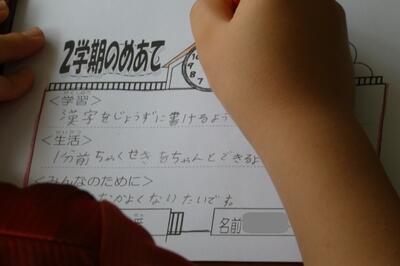 2学期のめあて
<学習>
漢字をじょうずに書けるよう
<生活>
1分前ちゃくせきをちゃんとできるよ
<みんなのために>
なかよくなりたいです
名前